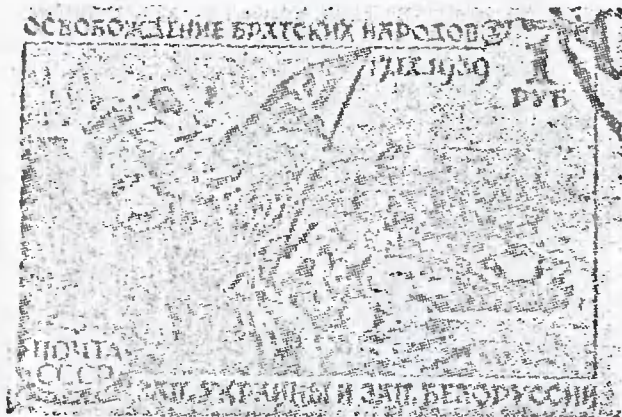 ОСВОБОЖДЕНИЕ БРАТСКИХ НАРОДОВ
17.IX.1939
1
РУБ
ПОЧТА
СССР
ЗАП. УКРАИНЫ И ЗАП. БЕЛОРУССИИ